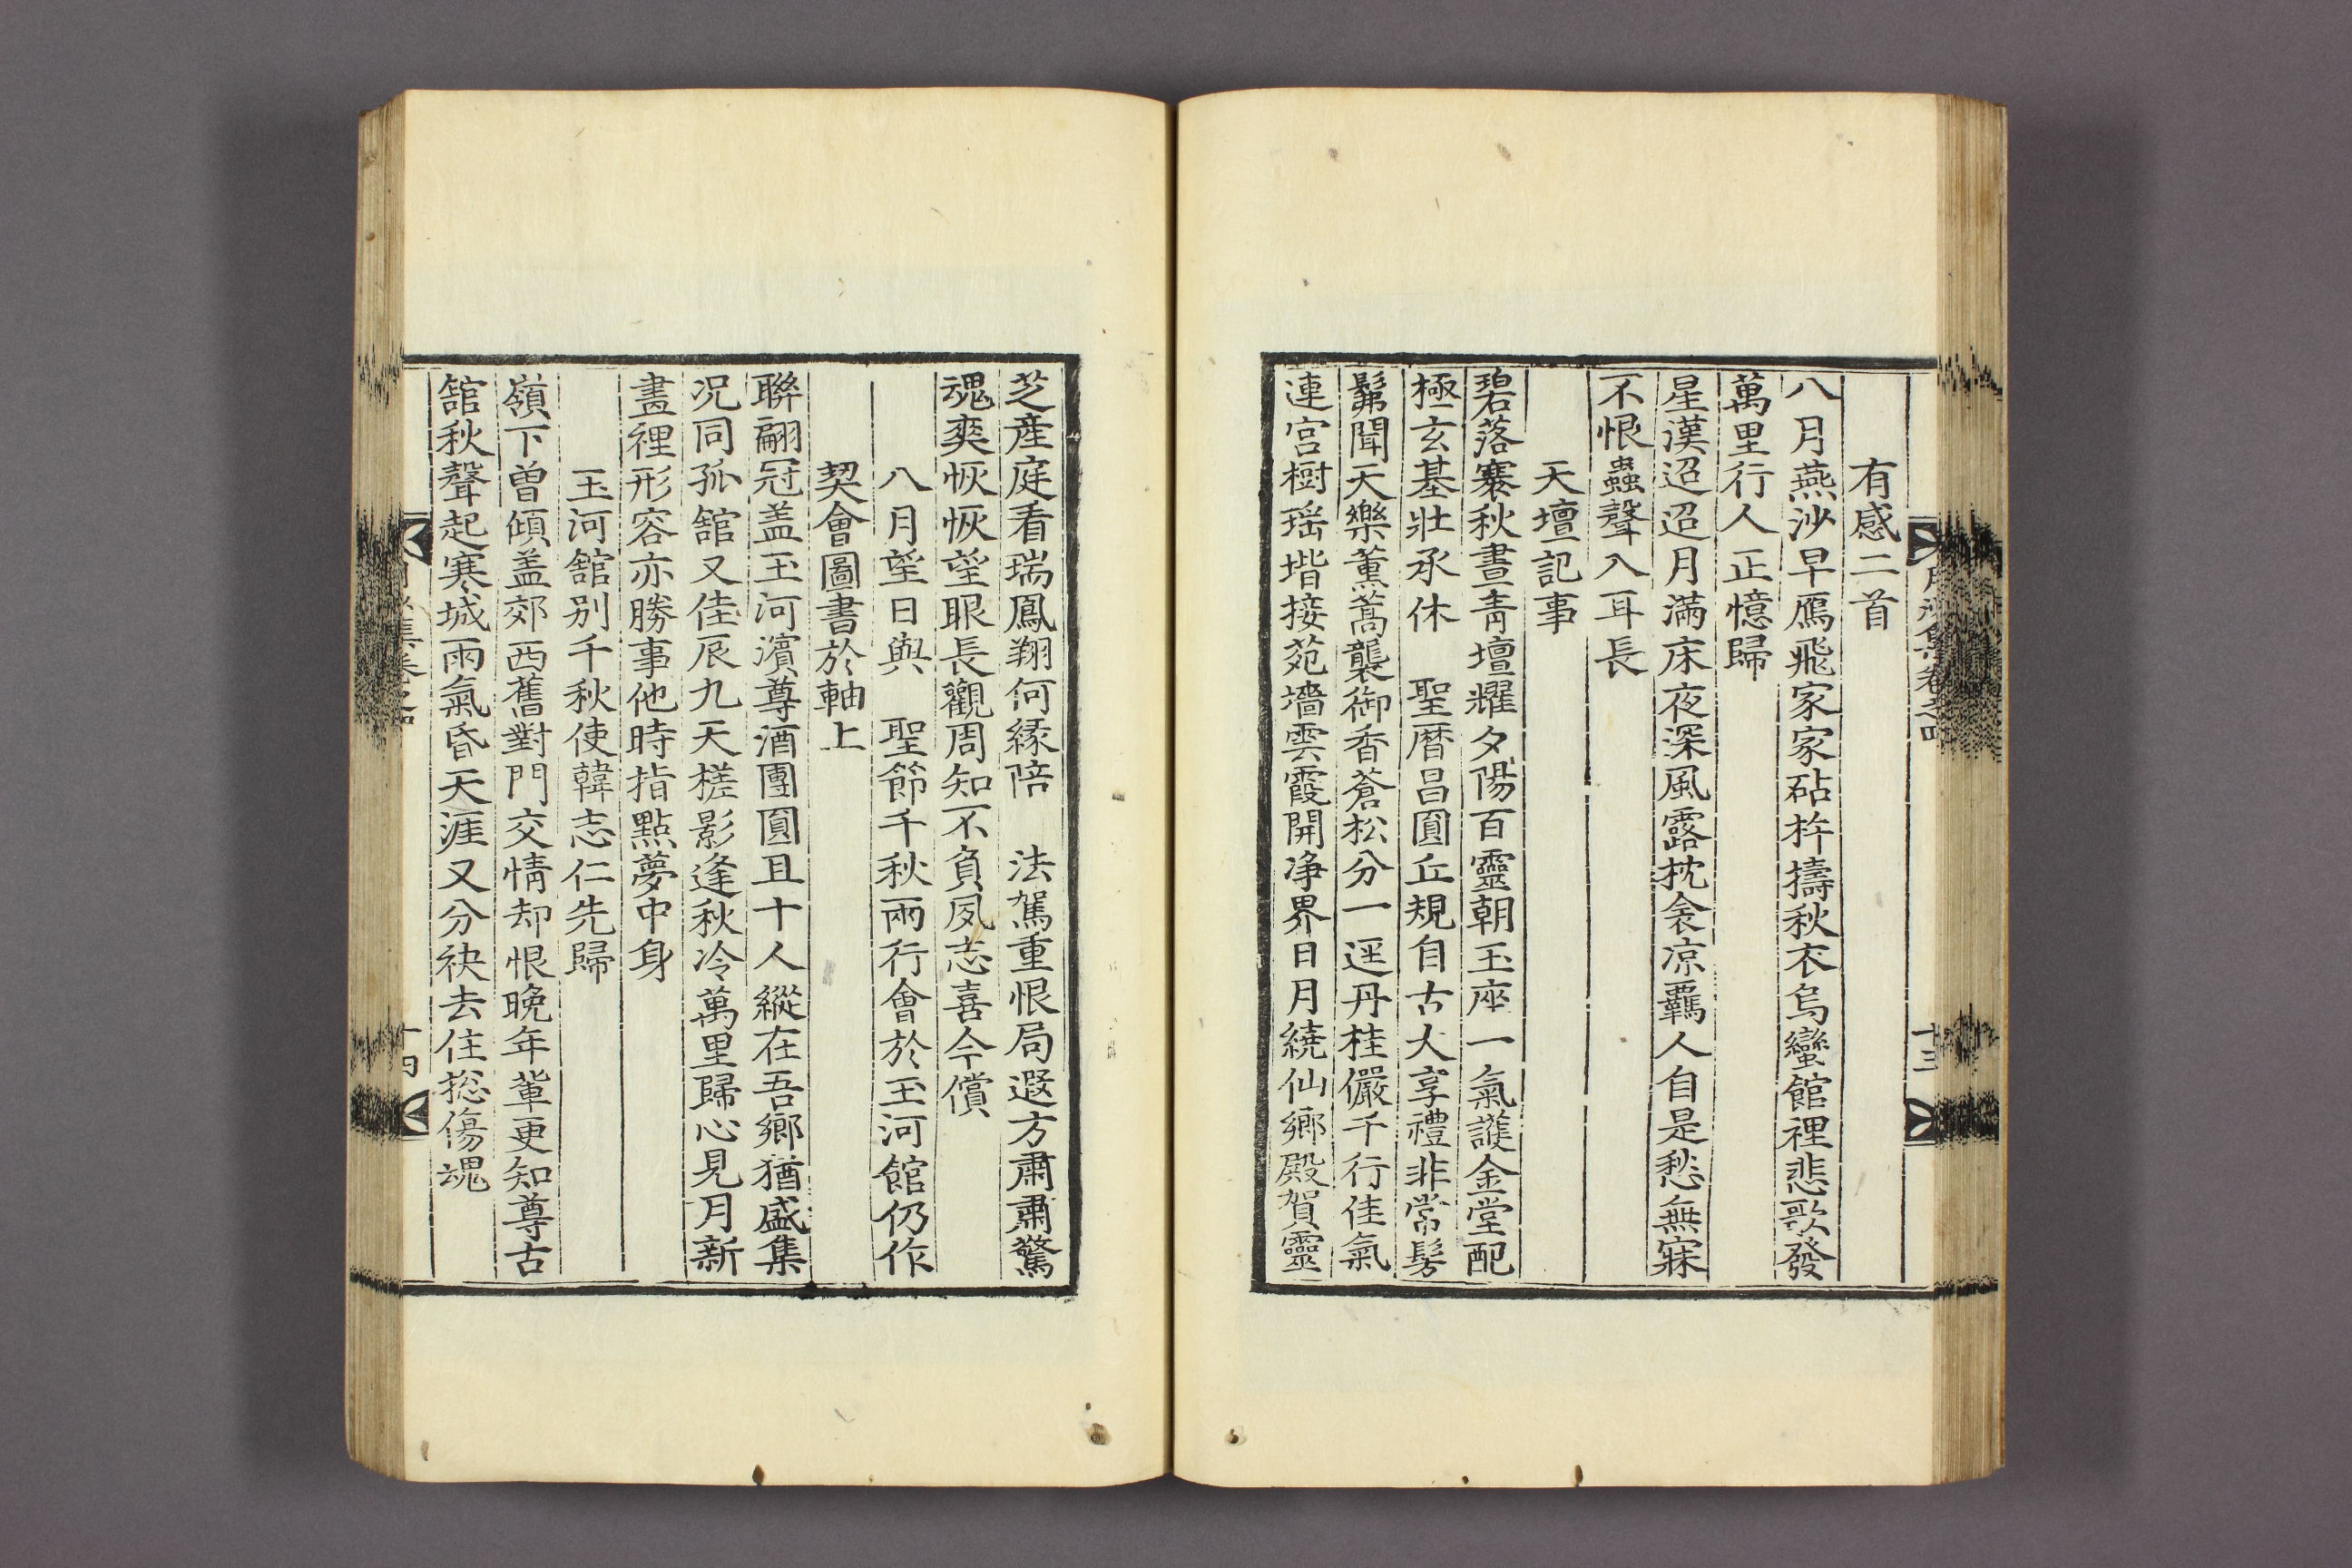 有感二首
八月燕沙早鴈飛家家砧杵擣秋衣烏蠻館裡悲歌發
萬里行人正憶歸
星漢迢迢月滿床夜深風露枕衾凉羈人自是愁無寐
不恨蟲聲入耳長
天壇記事
碧落褰秋晝靑壇耀夕陽百靈朝玉座一氣護金堂配
極玄基壯承休 聖曆昌圓丘規自古大享禮非常髣
髴聞天樂薰蒿襲御香蒼松分一逕丹桂儼千行佳氣
連宮樹瑶堦接苑墻雲霞開净界日月繞仙鄉殿賀靈
芝産庭看瑞鳳翔何緣陪 法駕重恨局遐方肅肅驚
魂爽恢恢望眼長觀周知不負夙志喜今償
八月望日與 聖節千秋兩行會於玉河館仍作
契會圖書於軸上
聯翩冠盖玉河濱尊酒團圓且十人縱在吾鄉猶盛集
况同孤舘又佳辰九天槎影逢秋冷萬里歸心見月新
畵裡形容亦勝事他時指點夢中身
玉河舘別千秋使韓志仁先歸
嶺下曾傾盖郊西舊對門交情却恨晚年輩更知尊古
舘秋聲起寒城雨氣昏天涯又分袂去住揔傷魂